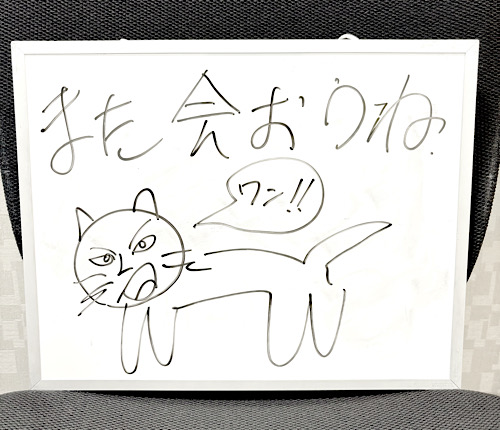 また会おうね
ワン!!